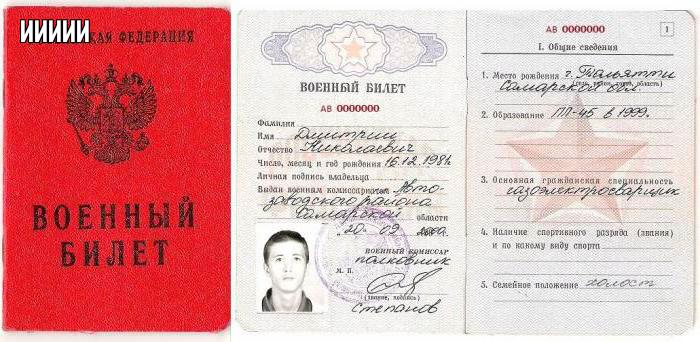 ИИИИИ
КАЯ ФЕДЕРАЦИЯ
ВОЕННЫЙ
БИЛЕТ
ВОЕННЫЙ БИЛЕТ
АВ 0000000
Фамилия
Имя Дмитрий
Отчество Николаевич
Число, месяц и год рождения 16.12.1981г.
Личная подпись владельца
Выдан военным комиссариатом Авто-
заводского района
Самарской области
"20" 09
ВОЕННЫЙ КОМИССАР
полковник
М. П.
(звание, подпись)
Степанов
АВ 0000000
1
I. Общие сведения
1. Место рождения г. Тольятти
Самарской обл.
2. Образование ПЛ-45 в 1999.
3. Основная гражданская специальность
газоэлектросварщик
4. Наличие спортивного разряда (звания)
и по какому виду спорта
5. Семейное положение холост